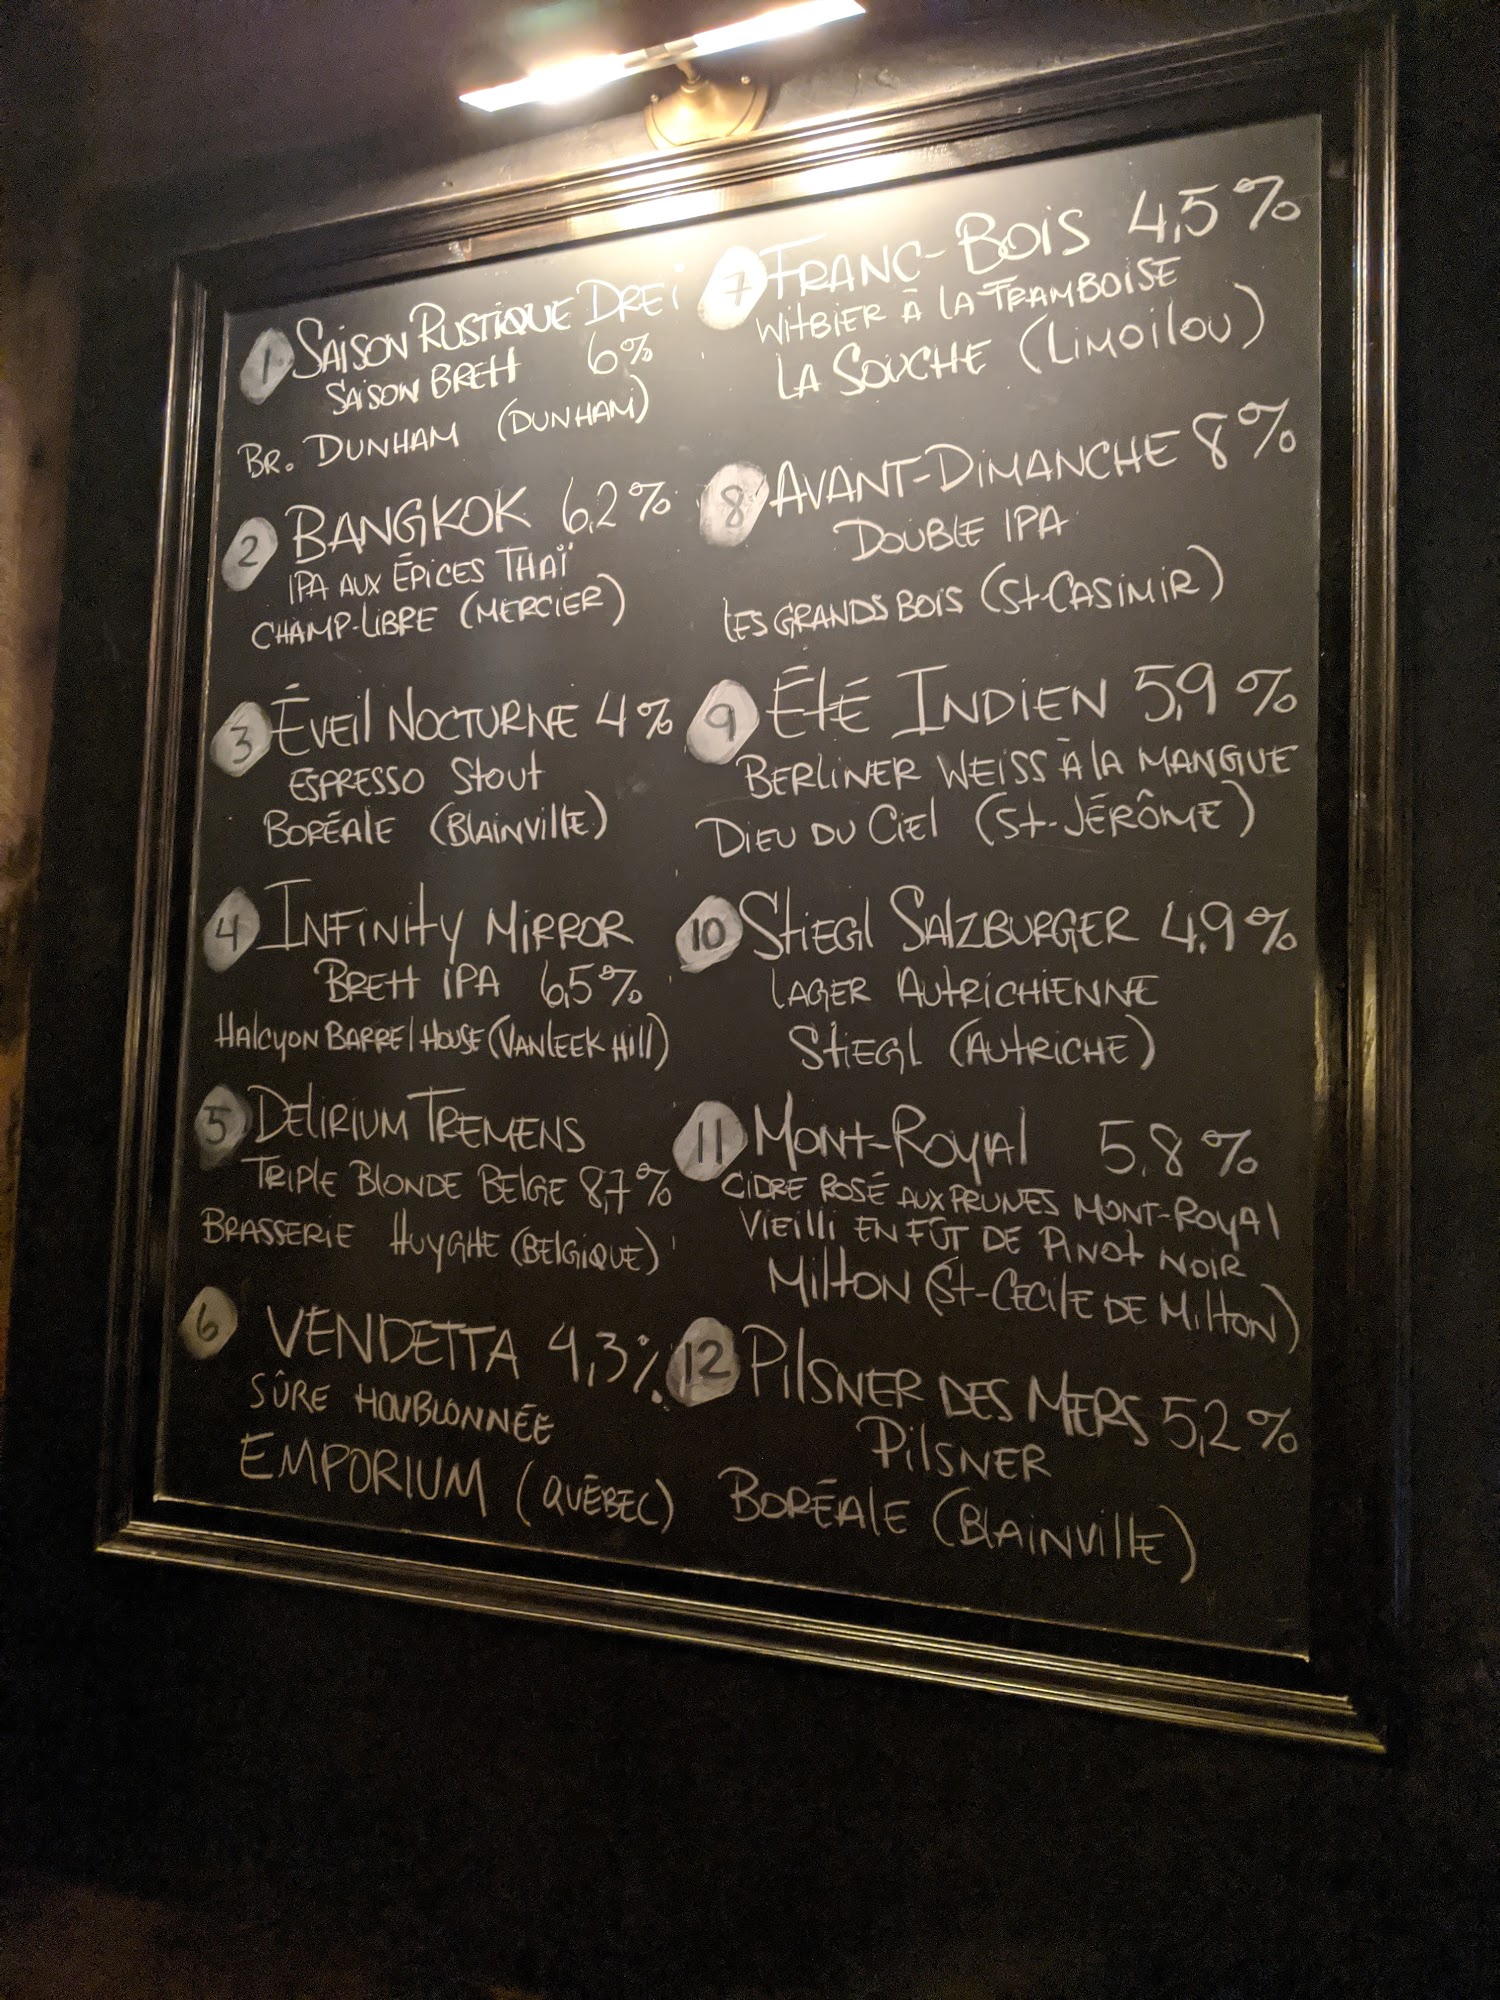 1 SAISON RUSTIQUE DREI
SAISON BRETT 6%
BR. DUNHAM (DUNHAM)
2 BANGKOK 6,2%
IPA AUX ÉPICES THAÏ
CHAMP-LIBRE (MERCIER)
3 ÉVEIL NOCTURNE 4%
ESPRESSO STOUT
BORÉALE (BLAINVILLE)
4 INFINITY MIRROR
BRETT IPA 6,5%
HALCYON BARREL HOUSE (VANLEEK HILL)
5 DELIRIUM TREMENS
TRIPLE BLONDE BELGE 8,7%
BRASSERIE HUYGHE (BELGIQUE)
6 VENDETTA 4,3%
SÛRE HOUBLONNÉE
EMPORIUM (QUÉBEC)
7 FRANC-BOIS 4,5%
WITBIER À LA FRAMBOISE
LA SOUCHE (LIMOILOU)
8 AVANT-DIMANCHE 8%
DOUBLE IPA
LES GRANDS BOIS (ST-CASIMIR)
9 ÉTÉ INDIEN 5,9%
BERLINER WEISS À LA MANGUE
DIEU DU CIEL (ST-JÉRÔME)
10 STIEGL SALZBURGER 4,9%
LAGER AUTRICHIENNE
STIEGL (AUTRICHE)
11 MONT-ROYAL 5,8%
CIDRE ROSÉ AUX PRUNES MONT-ROYAL
VIEILLI EN FÛT DE PINOT NOIR
MILTON (ST-CECILE DE MILTON)
12 PILSNER DES MERS 5,2%
PILSNER
BORÉALE (BLAINVILLE)